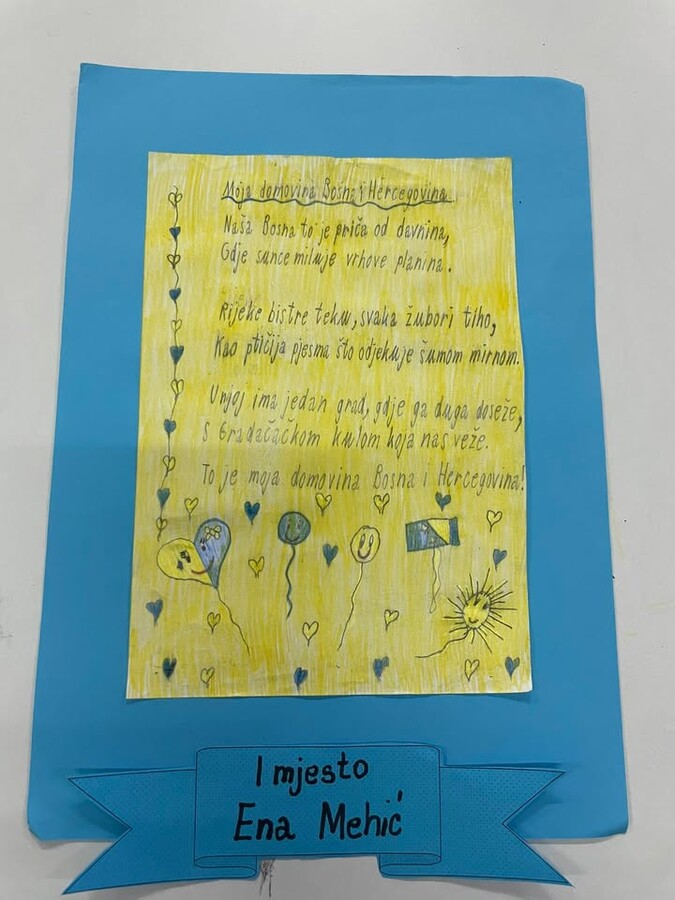 Moja domovina Bosna i Hercegovina
Naša Bosna to je priča od davnina,
Gdje sunce miluje vrhove planina.
Rijeke bistre teku, svaka žubori tiho,
Kao ptičija pjesma što odjekuje šumom mirnom.
Unjoj ima jedan grad, gdje ga duga doseže,
S Gradačačkom kulom koja nas veže.
To je moja domovina Bosna i Hercegovina!
I mjesto
Ena Mehić